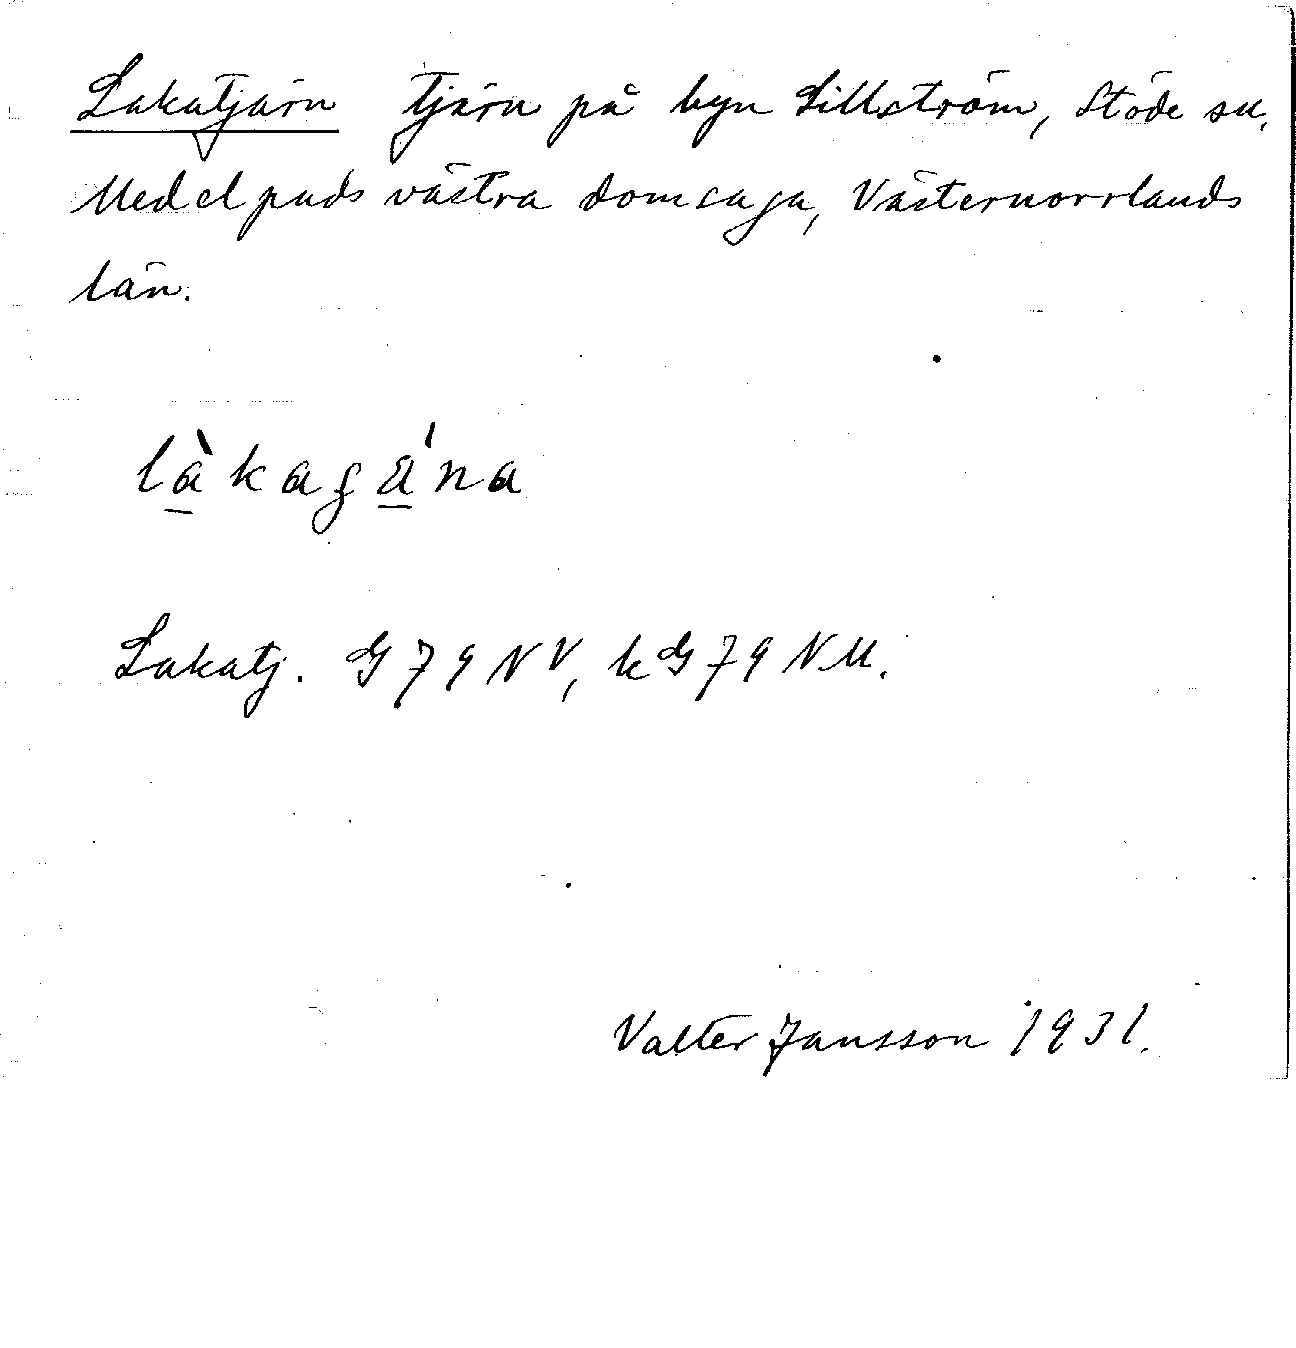 Lakatjärn tjärn på byn Lillström, Stöde sn,
Medelpads västra domsaga, Västernorrlands
län.
Lakatj. G 79 NV, kG 79 NM.
Valter Jansson 1931.